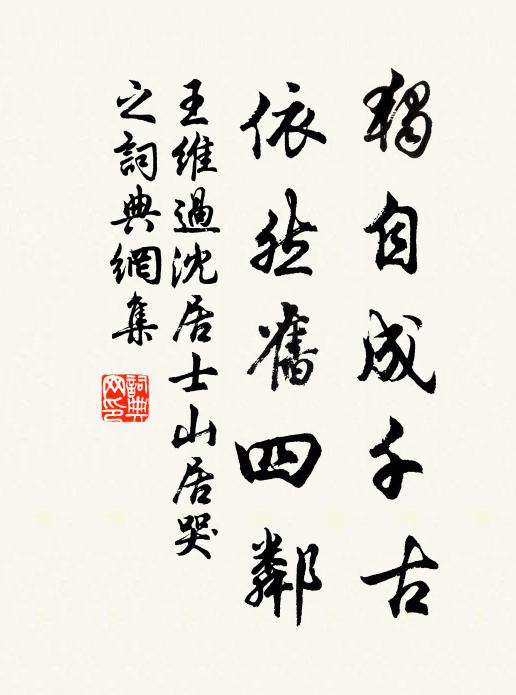 獨自成千古
依然舊四鄰
王維過沈居士山居哭
之詞典網集
詞典
网印